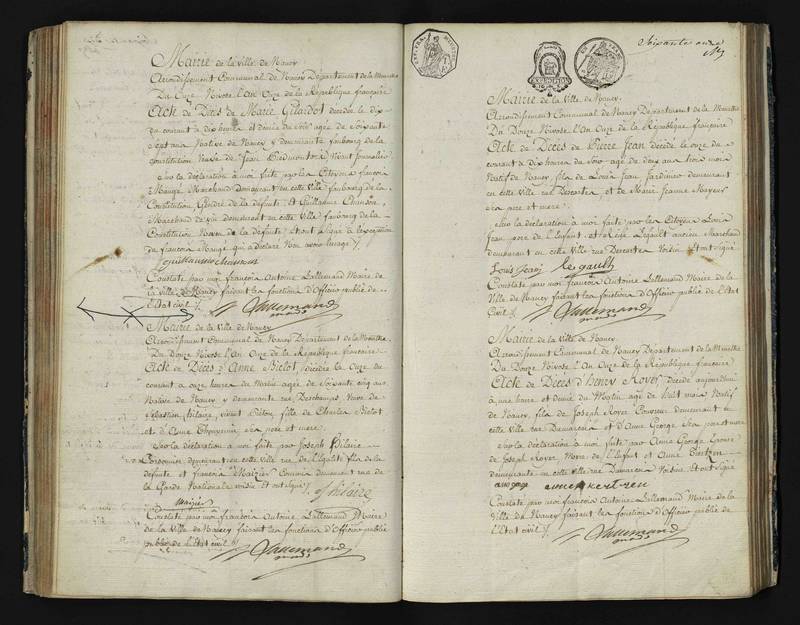 Mairie de la Ville de Nancy
Arrondissement Communal de Nancy Département de la Meurthe
Du Onze Nivose l'An Onze de la République française
Acte de Décès de Marie Gilardot décédée le dix
du courant à dix heures et demie du soir agée de soixante
sept ans Native de Nancy y demeurante faubourg de la
Constitution Veuve de Jean Vivant Journalier
Sur la déclaration à moi faite par les Citoyens françois
Mangé Marchand demeurant en cette Ville faubourg de la
Constitution Gendre de la défunte, Et Guillaume Chanson,
Marchand de vin demeurant en cette Ville faubourg de la
Constitution Neveu de la défunte Et ont signé à l'exception
de françois Mangé qui a déclaré Non avoir l'usage ./.
Guillaume Chanson
Constaté par moi françois Antoine Lallemand Maire de
la Ville de Nancy faisant les fonctions d'Officier public de
l'Etat civil ./. Lallemand
maire
Mairie de la Ville de Nancy
Arrondissement Communal de Nancy Département de la Meurthe
Du Douze Nivose l'An Onze de la République francaise
Acte de Décès d'Anne Bictot décédée le Onze du
courant à onze heures du Matin agée de Soixante cinq ans
Native de Nancy y demeurante rue Deschamps Veuve de
Sébastien hilaire, vivant fille de Charles Bictot
et d'Anne ses père et mere.
Sur la déclaration à moi faite par Joseph hilaire
Cordonnier, demeurant en cette Ville rue de l'Egalité fils de la
défunte et françois Maizier Commis demeurant rue de
la Garde Nationale voisin Et ont signé ./. J hilaire
Maizier
Constaté par moi françois Antoine Lallemand Maire
de la Ville de Nancy faisant les fonctions d'Officier public
public de l'Etat civil ./. Lallemand
maire
Soixante onze
Mairie de la Ville de Nancy.
Arrondissement Communal de Nancy Département de la Meurthe
Du Douze Nivose l'An Onze de la République francaise
Acte de Décès de Pierre Jean décédé le onze du
courant à dix heures du soir agé de deux ans trois mois
Natif de Nancy, fils de Louis Jean Jardinier demeurant
en cette Ville rue Descartes, et de Marie Jeanne Mayeur
ses pere et mere.
Sur la déclaration à moi faite par les Citoyens Louis
Jean pere de l'Enfant, et Légault ancien Marchand
demeurant en cette Ville rue Descartes Voisin Et ont signé
Louis Jean Legault
Constaté par moi françois Antoine Lallemand Maire de la
Ville de Nancy faisant les fonctions d'Officier public de l'Etat
Civil ./. Lallemand
maire
Mairie de la Ville de Nancy.
Arrondissement Communal de Nancy Département de la Meurthe
Du Douze Nivose l'An Onze de la République francaise
Acte de Décès d'Henry Royer, décédé aujourd'hui
à une heure et demie du Matin agé de huit mois Natif
de Nancy, fils de Joseph Royer Couvreur demeurant en
cette Ville rue et d'Anne George ses pere et mere
Sur la déclaration à moi faite par Anne George Epouse
de Joseph Royer Mere de l'Enfant et Anne
demeurante en cette Ville rue Voisine Et ont signé
Constaté par moi françois Antoine Lallemand Maire de la
Ville de Nancy faisant les fonctions d'Officier public de
l'Etat civil ./. Lallemand
maire